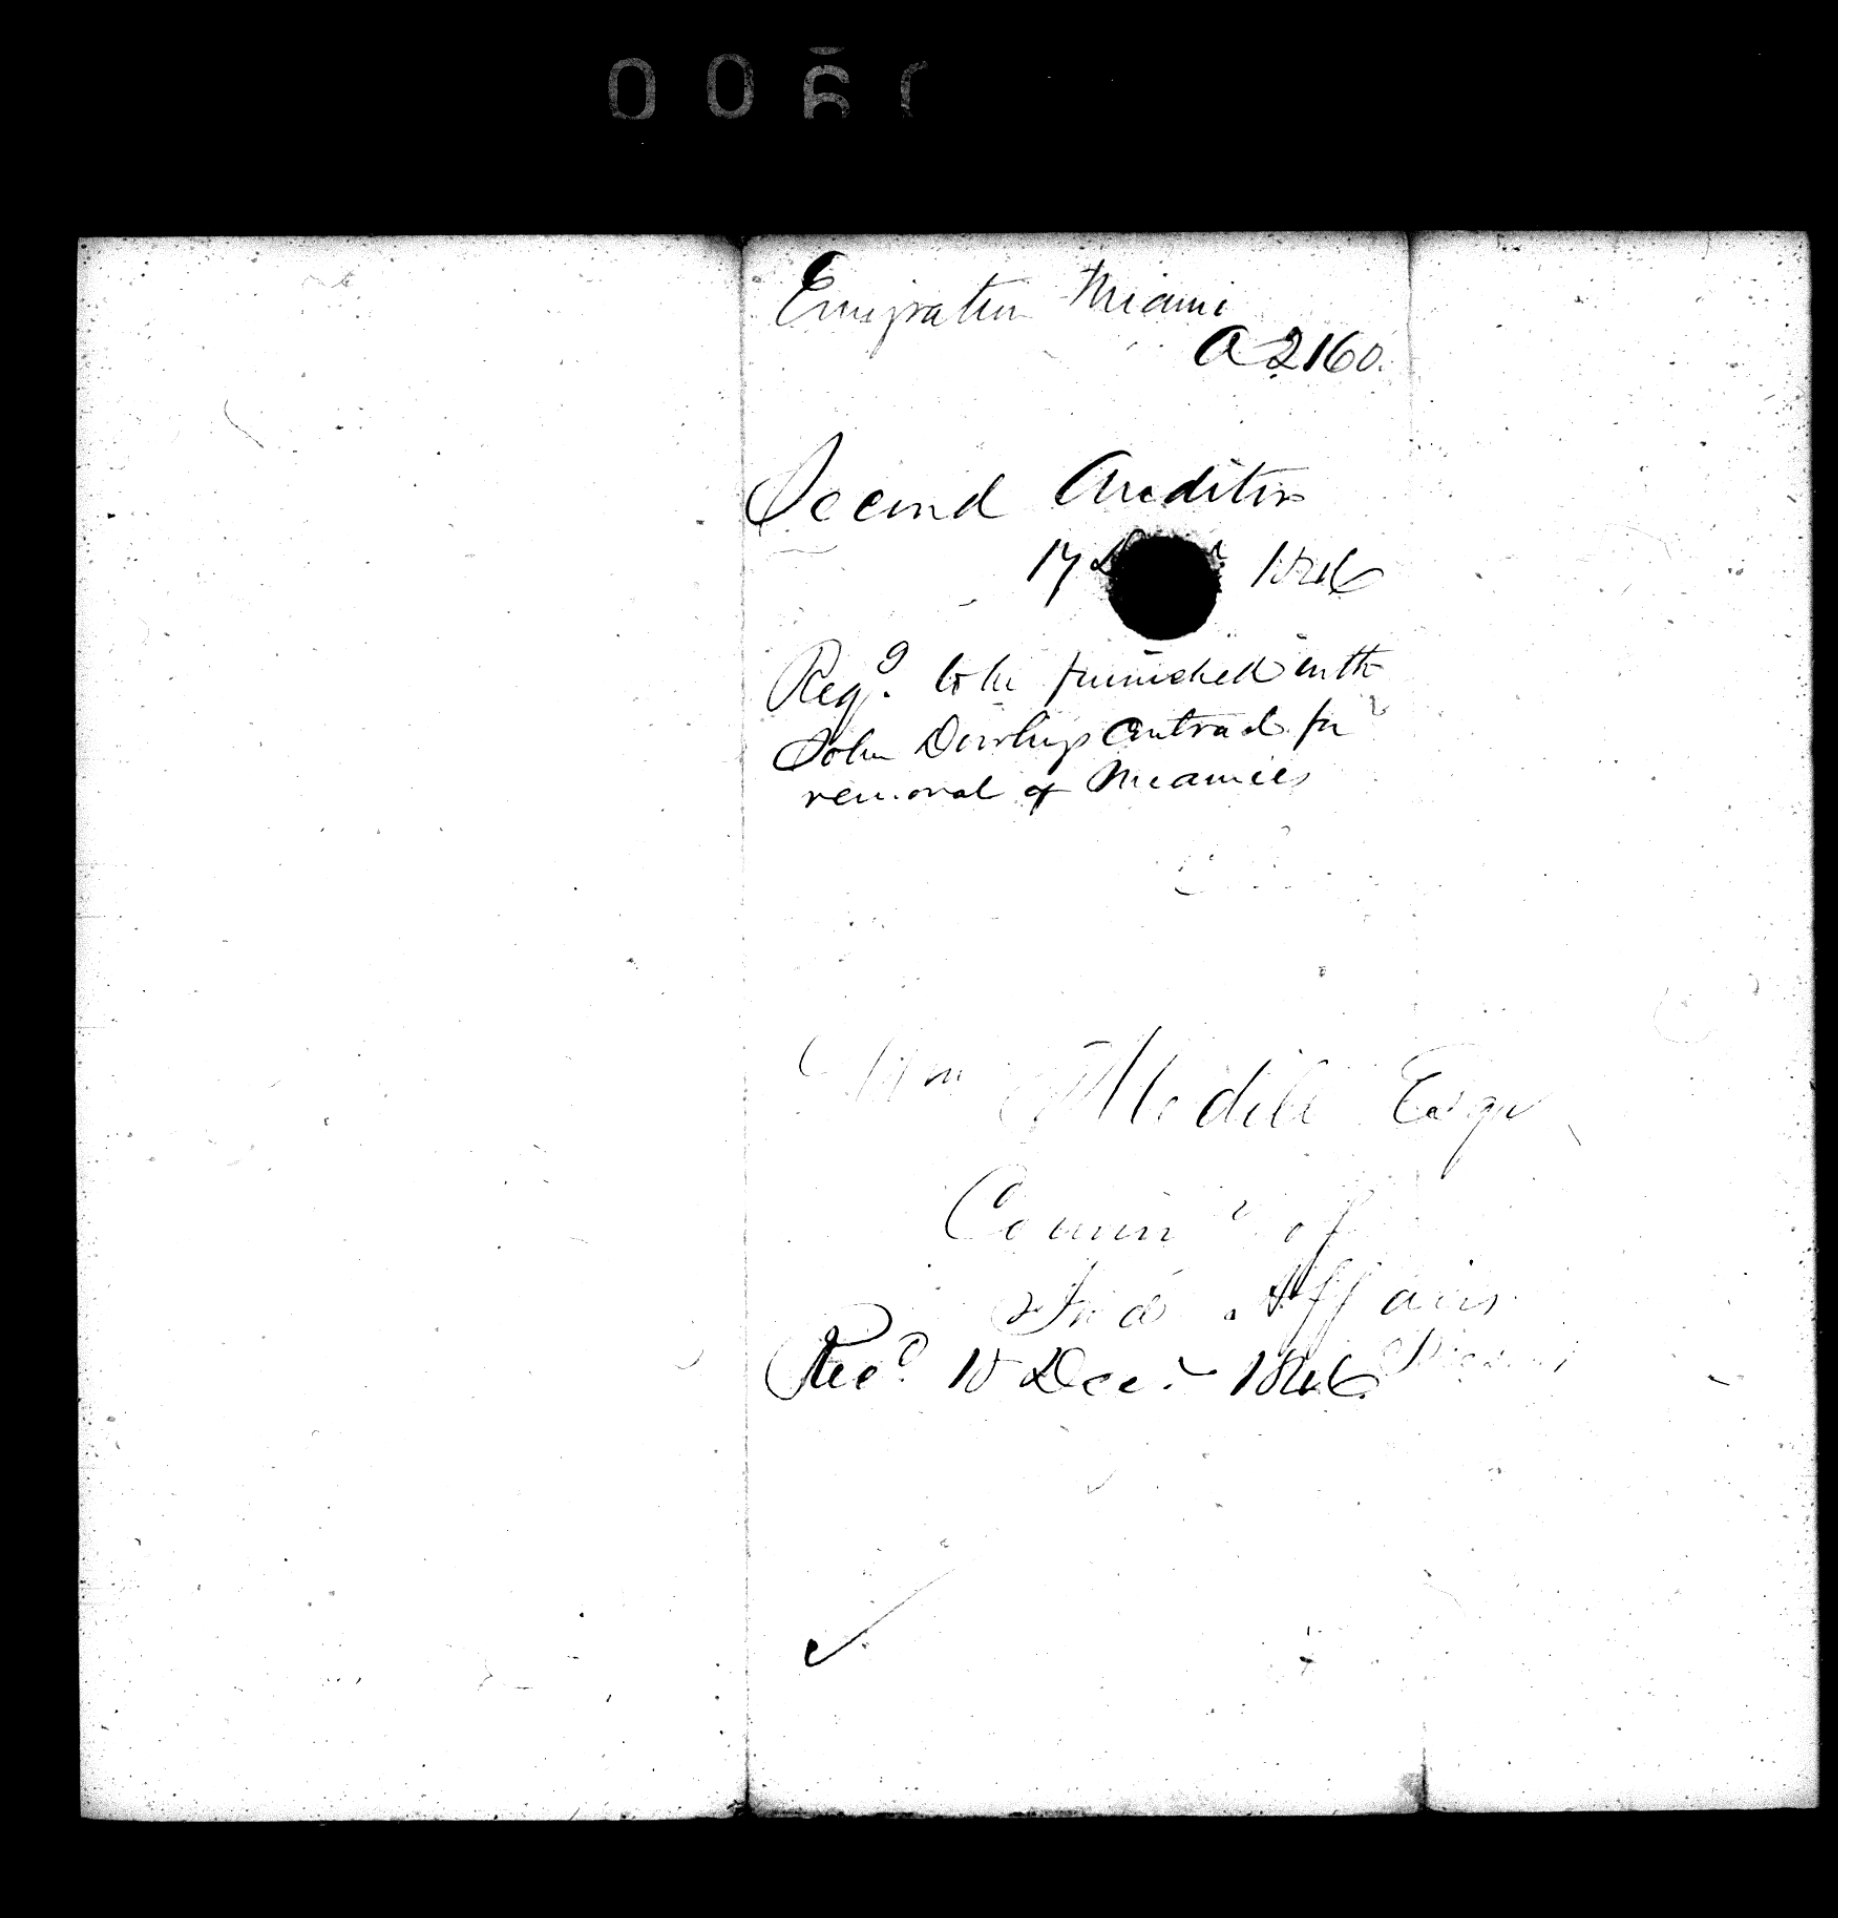 Emigration Miami
A 2160.
Second Auditor
17 1846
Reqg. to be furnished with
John Dowling's contract for
removal of Miamies
Wm Medill Esqr
Commr of
Ind Affairs
Recd 18 Decr 1846